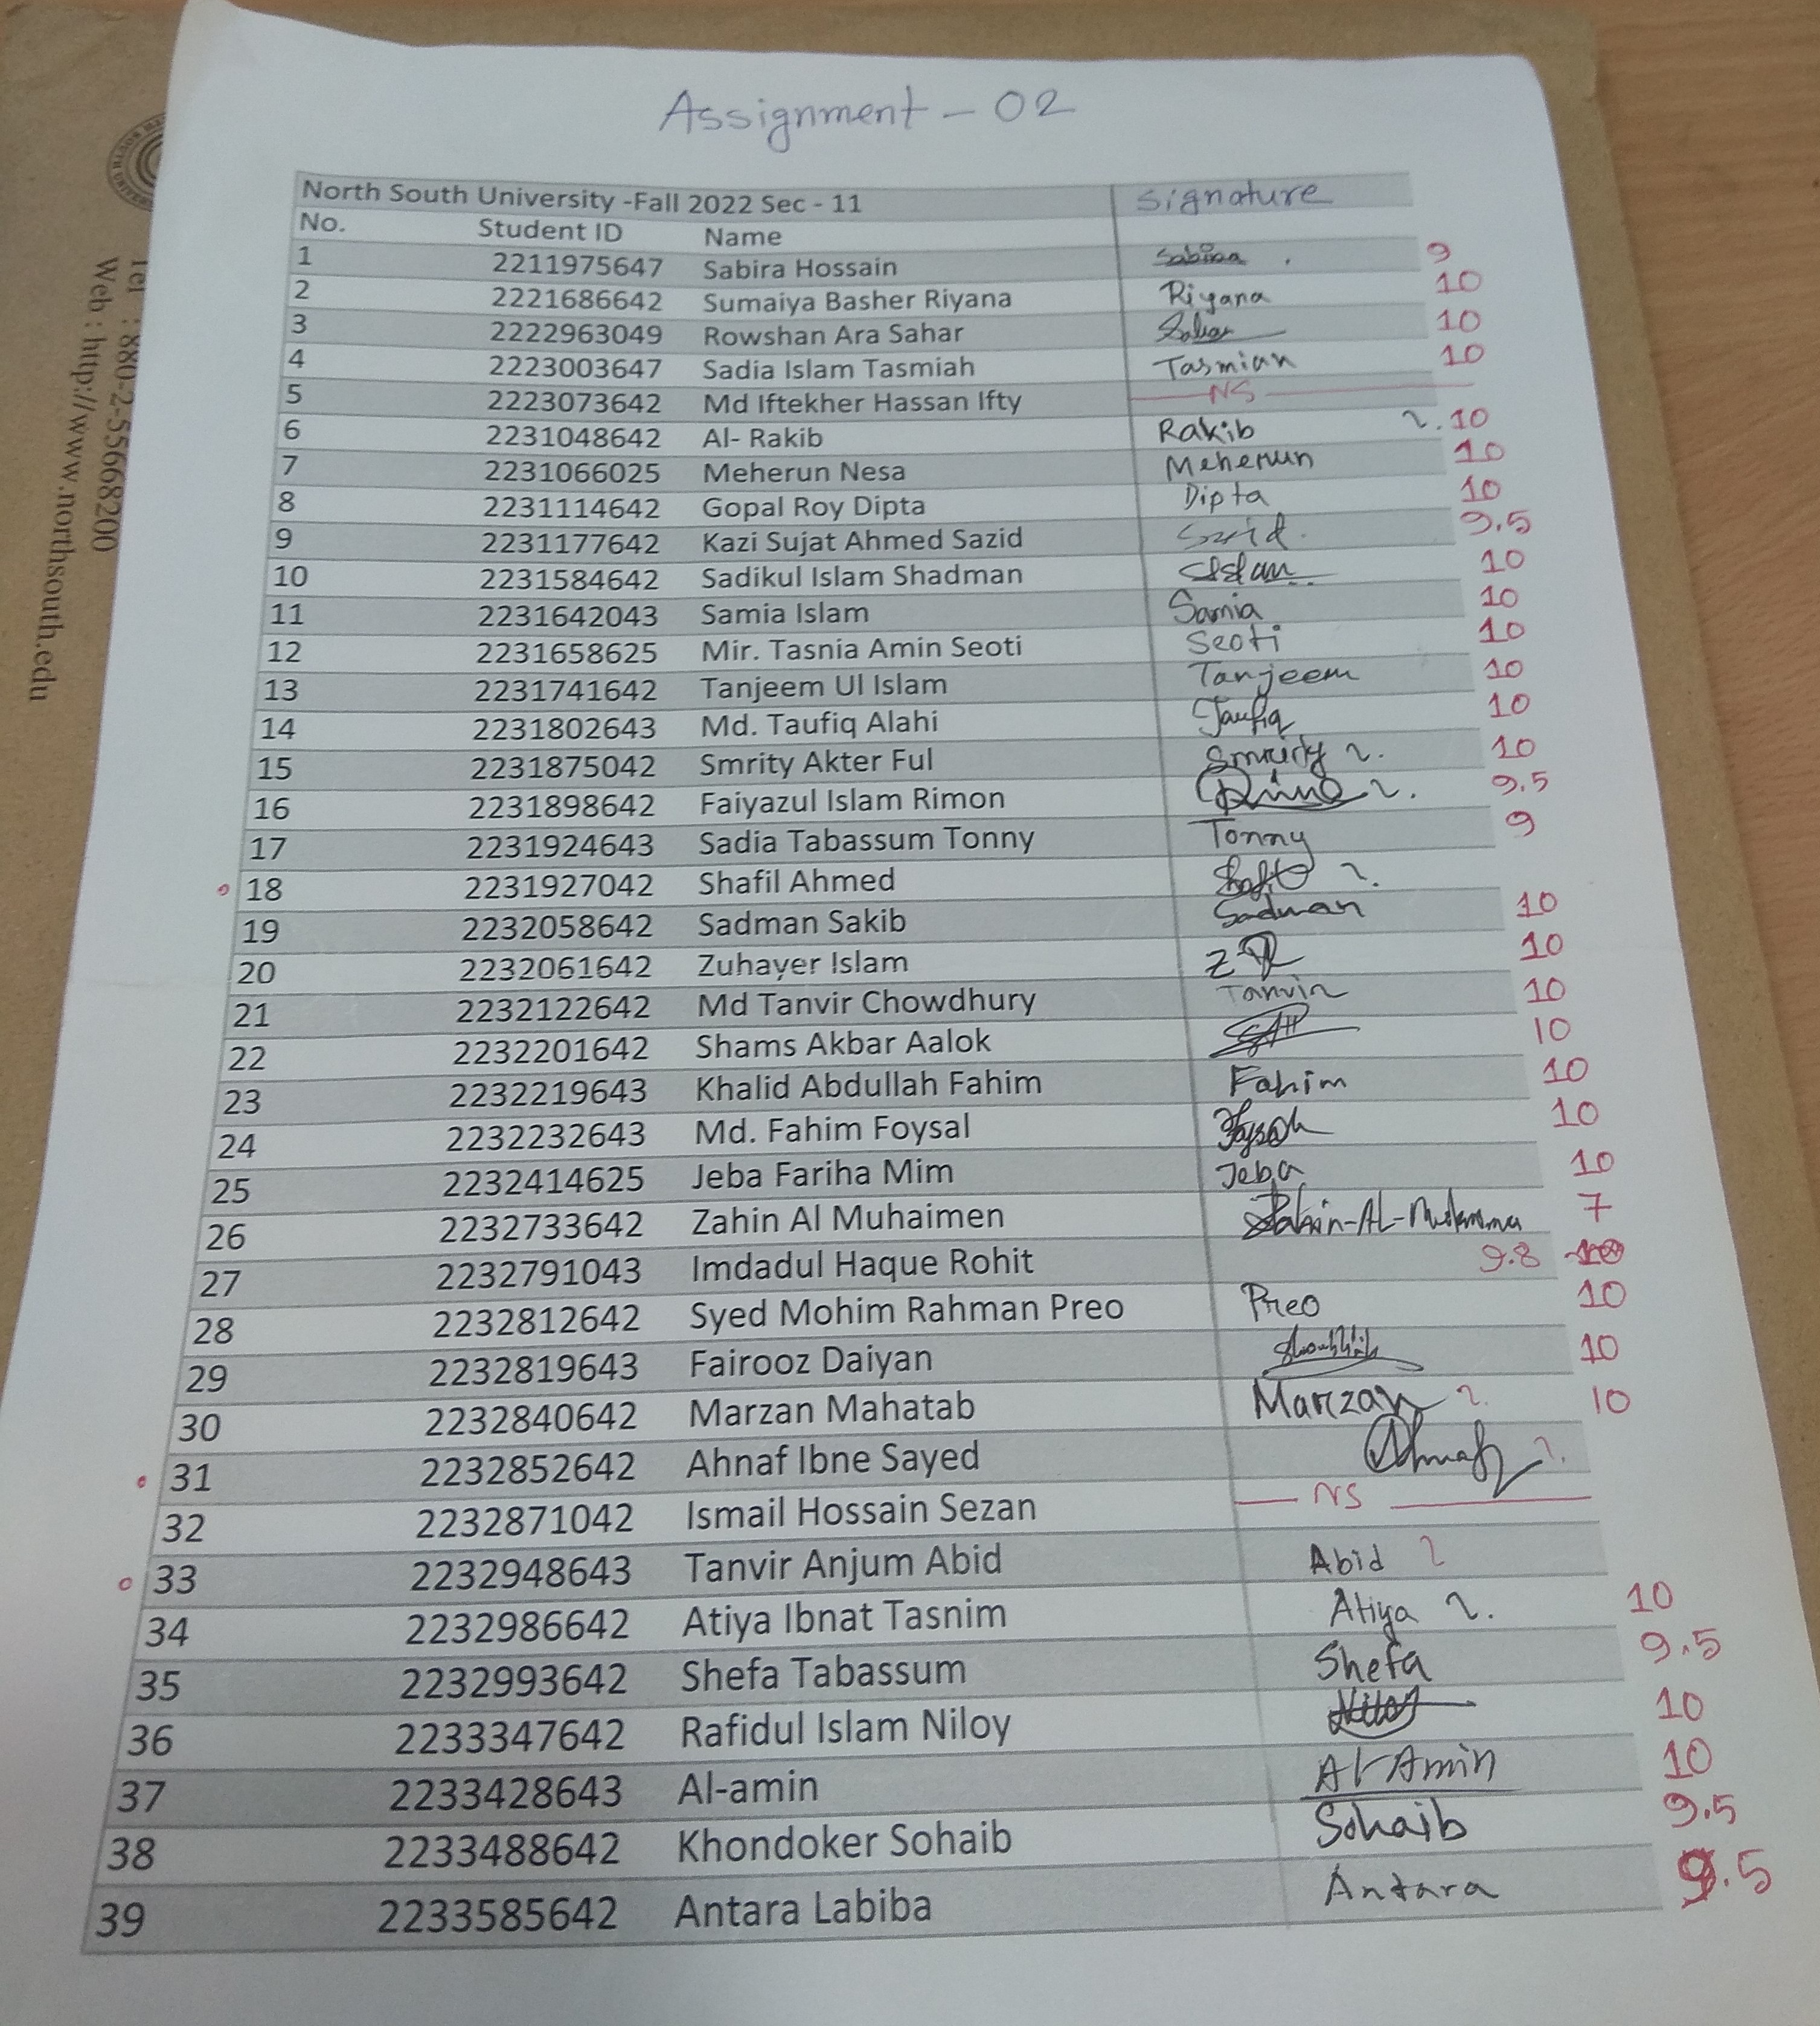 Assignment - 02
North South University -Fall 2022 Sec - 11 Signature
No. Student ID Name
1 2211975647 Sabira Hossain Sabira 9
2 2221686642 Sumaiya Basher Riyana Riyana 10
3 2222963049 Rowshan Ara Sahar Sahar 10
4 2223003647 Sadia Islam Tasmiah Tasmiah 10
5 2223073642 Md Iftekher Hassan Ifty NS
6 2231048642 Al- Rakib Rakib 2. 10
7 2231066025 Meherun Nesa Meherun 10
8 2231114642 Gopal Roy Dipta Dipta 10
9 2231177642 Kazi Sujat Ahmed Sazid 9.5
10 2231584642 Sadikul Islam Shadman 10
11 2231642043 Samia Islam Samia 10
12 2231658625 Mir. Tasnia Amin Seoti Seoti 10
13 2231741642 Tanjeem Ul Islam Tanjeem 10
14 2231802643 Md. Taufiq Alahi Taufiq 10
15 2231875042 Smrity Akter Ful Smrity 2. 10
16 2231898642 Faiyazul Islam Rimon 2. 9.5
17 2231924643 Sadia Tabassum Tonny Tonny 9
18 2231927042 Shafil Ahmed 2.
19 2232058642 Sadman Sakib Sadman 10
20 2232061642 Zuhayer Islam 10
21 2232122642 Md Tanvir Chowdhury Tanvir 10
22 2232201642 Shams Akbar Aalok 10
23 2232219643 Khalid Abdullah Fahim Fahim 10
24 2232232643 Md. Fahim Foysal Foysal 10
25 2232414625 Jeba Fariha Mim Jeba 10
26 2232733642 Zahin Al Muhaimen 7
27 2232791043 Imdadul Haque Rohit 9.8 10
28 2232812642 Syed Mohim Rahman Preo Preo 10
29 2232819643 Fairooz Daiyan 10
30 2232840642 Marzan Mahatab Marzan 2. 10
31 2232852642 Ahnaf Ibne Sayed Ahnaf 2.
32 2232871042 Ismail Hossain Sezan NS
33 2232948643 Tanvir Anjum Abid Abid 2
34 2232986642 Atiya Ibnat Tasnim Atiya 2. 10
35 2232993642 Shefa Tabassum Shefa 9.5
36 2233347642 Rafidul Islam Niloy Niloy 10
37 2233428643 Al-amin Al-Amin 10
38 2233488642 Khondoker Sohaib Sohaib 9.5
39 2233585642 Antara Labiba Antara 9.5
Tel : 880-2-55668200
Web : http://www.northsouth.edu